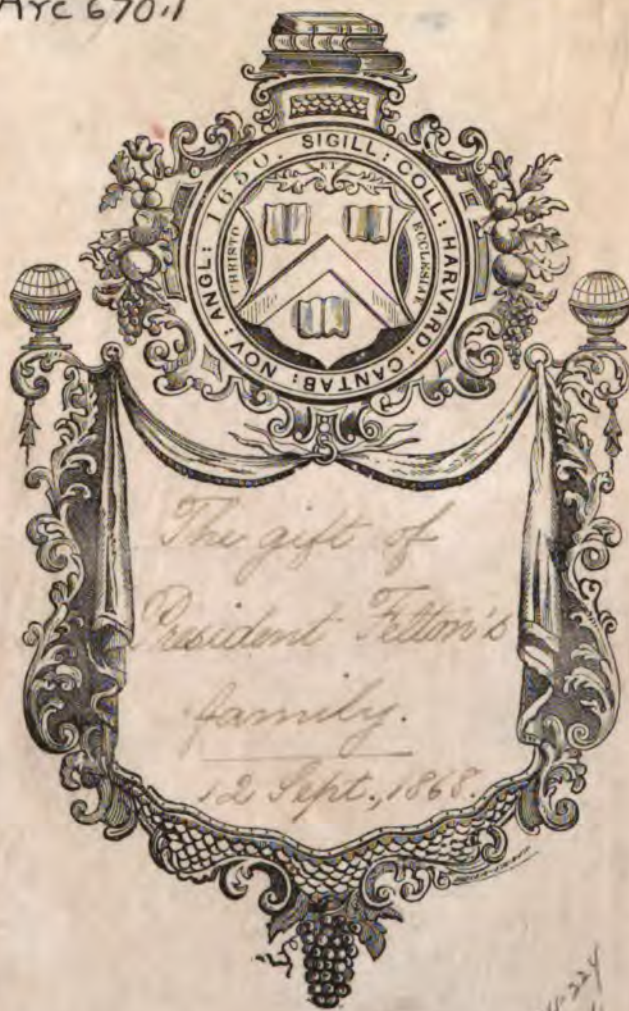 Arc 670.1
SIGILL: COLL: HARVARD: CANTAB: NOV: ANGL: 1650.
CHRISTO
ET
ECCLESIAE
The gift of
President Felton's
family.
12 Sept., 1868.